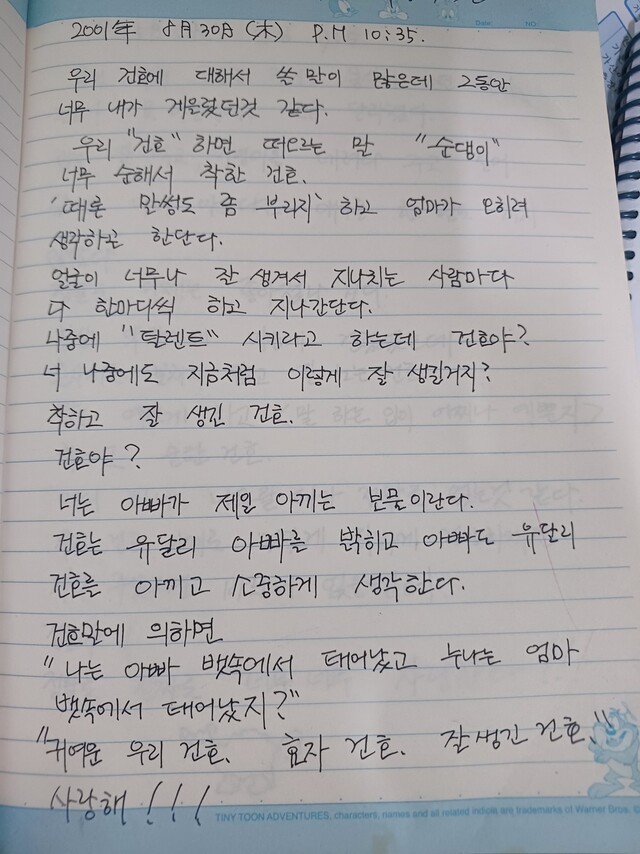 Date:
NO.
2001年 8月 30日 (木) P.M 10:35.
우리 건호에 대해서 쓸 말이 많은데 그동안
너무 내가 게을렀던것 같다.
우리 "건호" 하면 떠오르는 말 "순댕이"
너무 순해서 착한 건호.
'때론 말썽도 좀 부리지' 하고 엄마가 오히려
생각하곤 한단다.
얼굴이 너무나 잘 생겨서 지나치는 사람마다
다 한마디씩 하고 지나간단다.
나중에 "탈렌트" 시키라고 하는데 건호야?
너 나중에도 지금처럼 이렇게 잘 생길거지?
착하고 잘 생긴 건호.
건호야?
너는 아빠가 제일 아끼는 보물이란다.
건호는 유달리 아빠를 밝히고 아빠도 유달리
건호를 아끼고 소중하게 생각한다.
건호말에 의하면
"나는 아빠 뱃속에서 태어났고 누나는 엄마
뱃속에서 태어났지?"
"귀여운 우리 건호. 효자 건호. 잘생긴 건호."
사랑해!!!
TINY TOON ADVENTURES, characters, names and all related indicia are trademarks of Warner Bros. ©